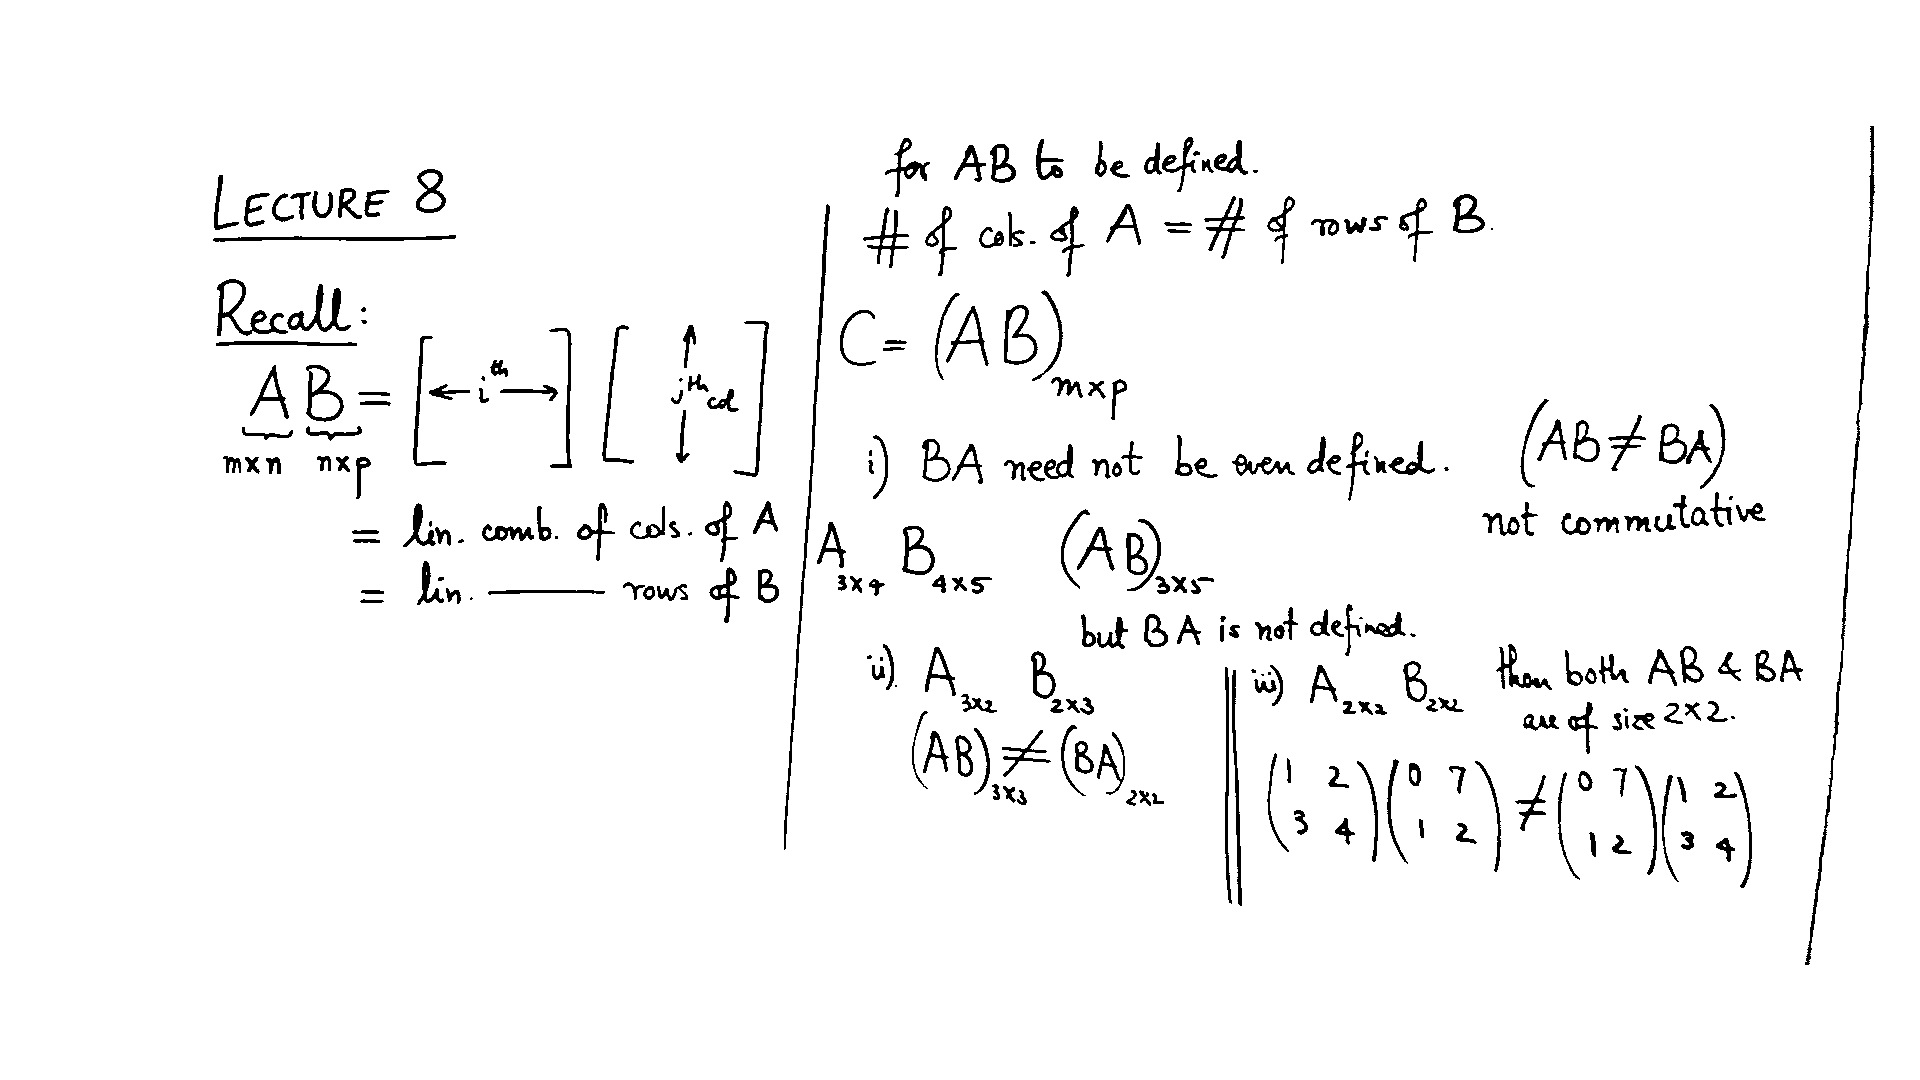 LECTURE 8
Recall:
A B = [ ← i th → ] [ ↑ jth col ↓ ]
m×n n×p
= lin. comb. of cols. of A
= lin. —— rows of B
for AB to be defined.
# of cols. of A = # of rows of B.
C = (AB) m×p
i) BA need not be even defined. (AB ≠ BA)
not commutative
A 3×4 B 4×5 (AB) 3×5
but BA is not defined.
ii) A 3×2 B 2×3
(AB) 3×3 ≠ (BA) 2×2
iii) A 2×2 B 2×2 then both AB & BA
are of size 2×2.
(1 2) (0 7) ≠ (0 7) (1 2)
(3 4) (1 2) (1 2) (3 4)